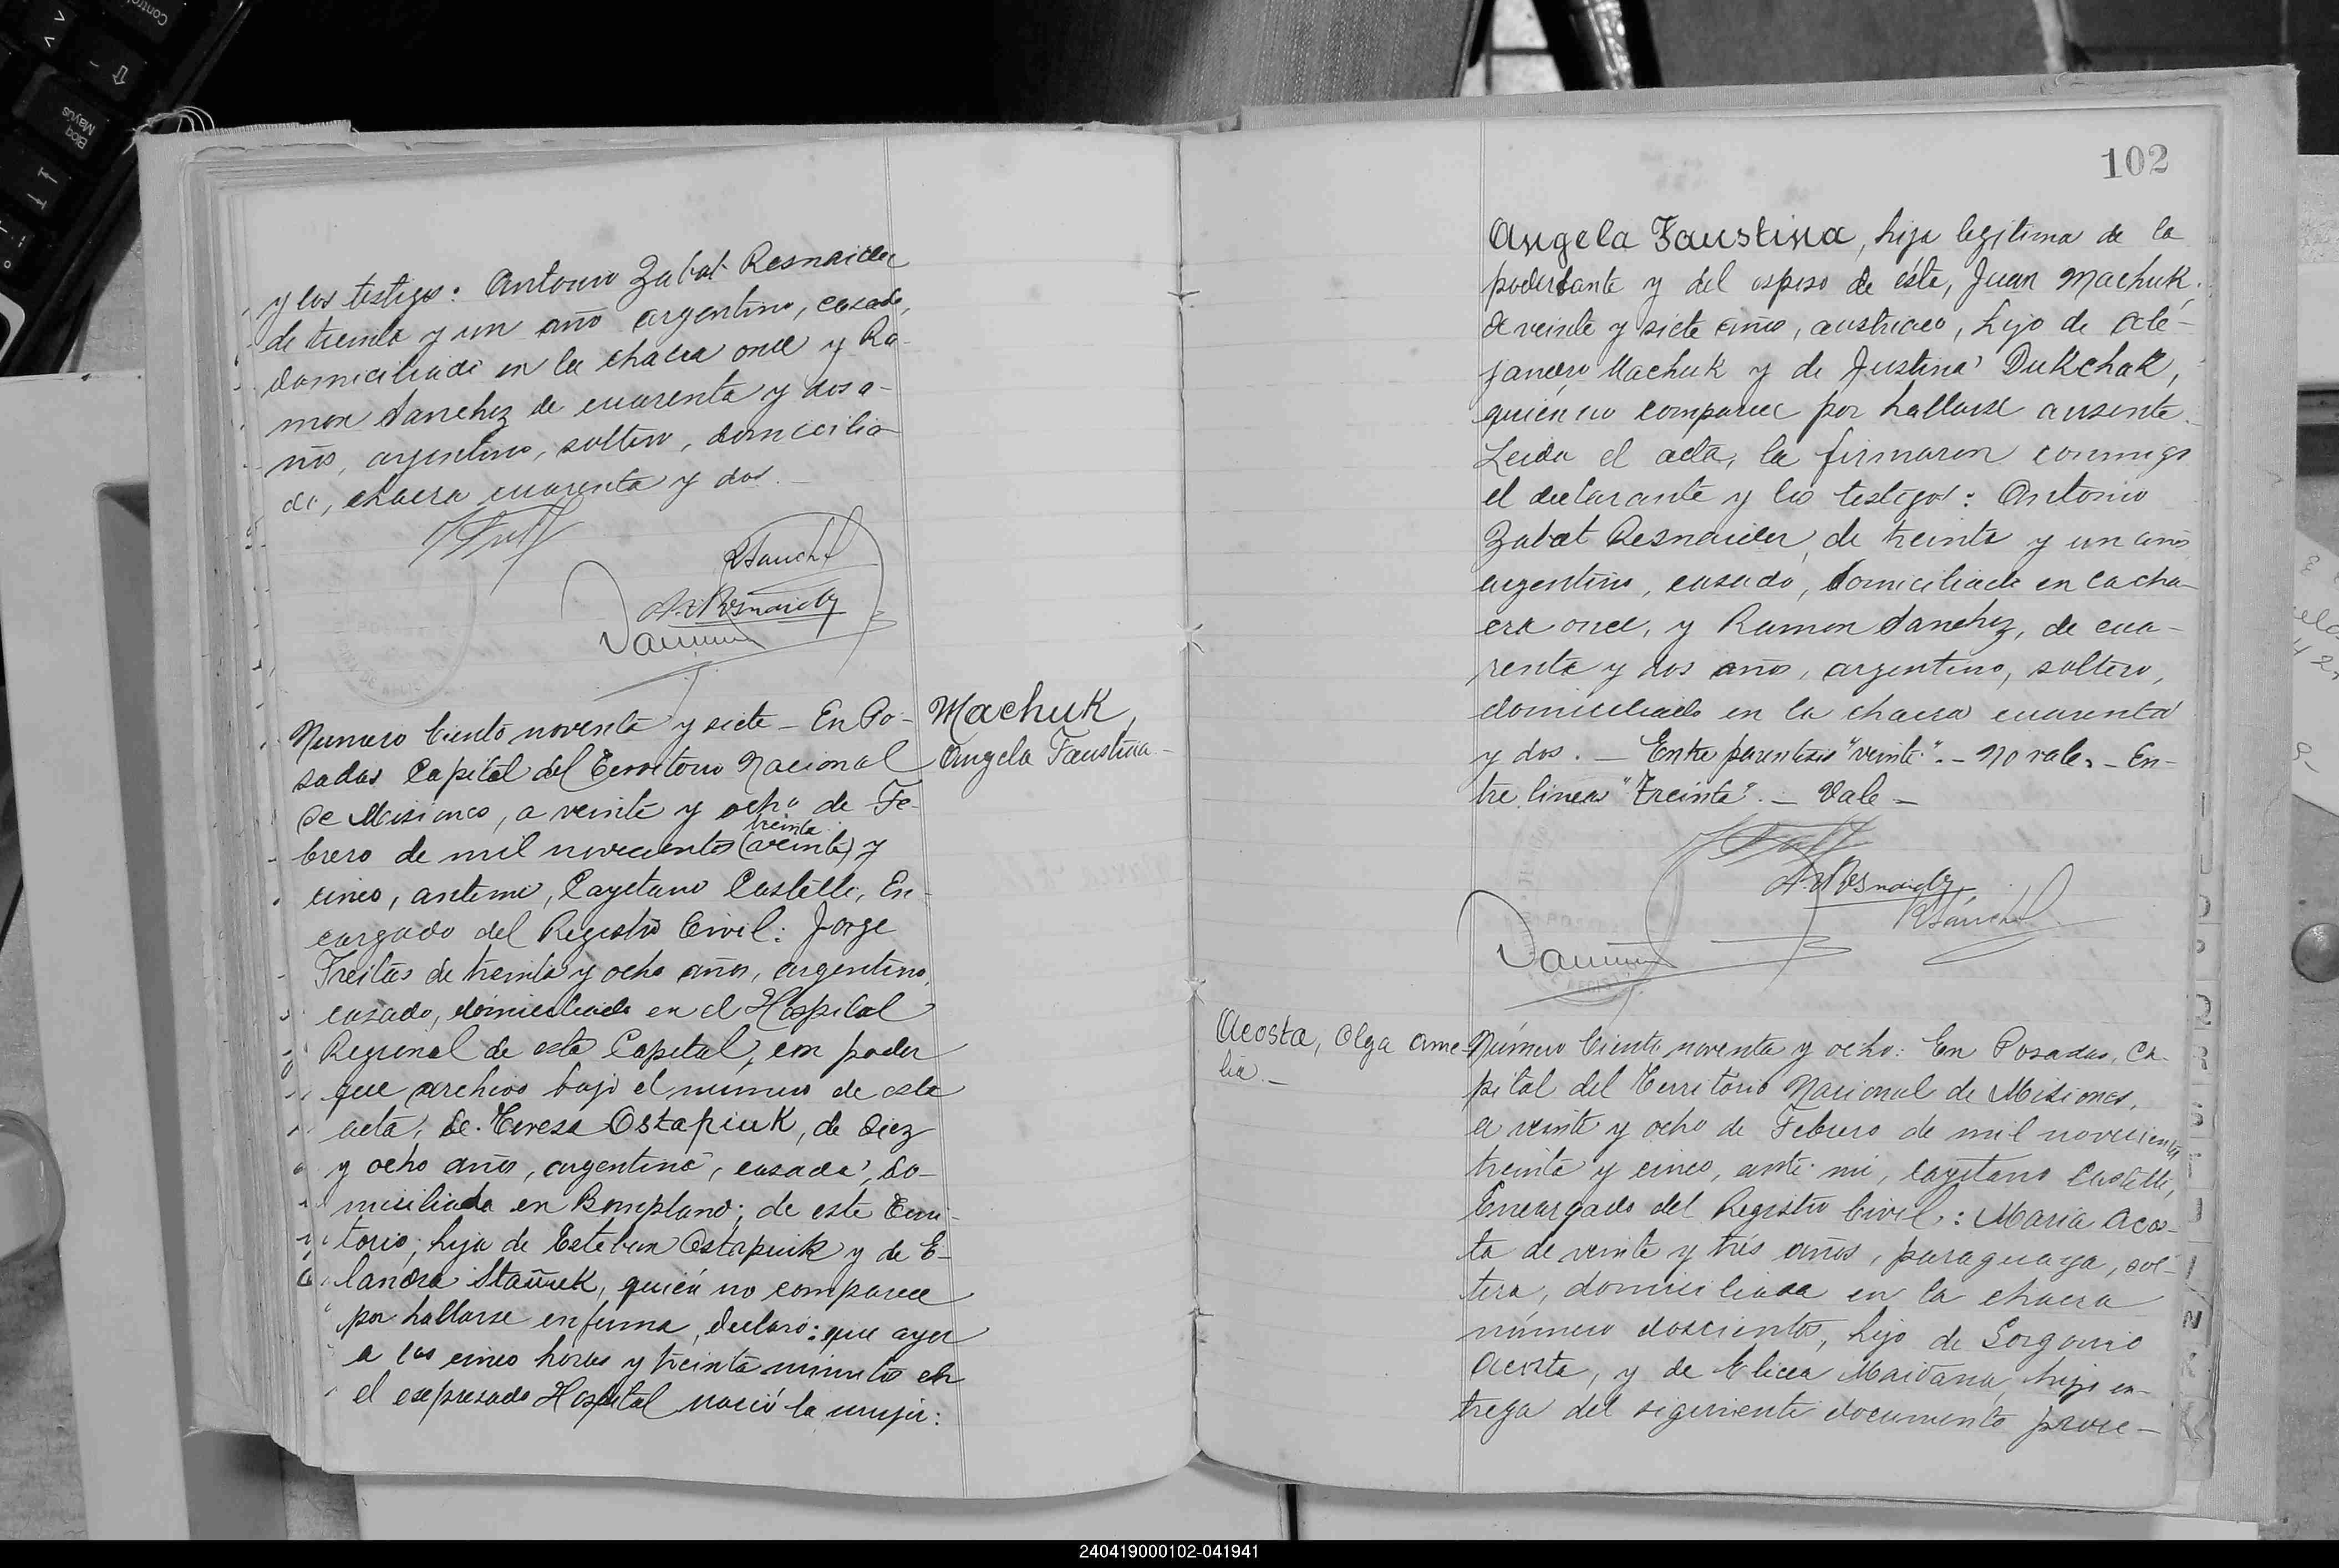 y los testigos: Antonio Zabat Resnaider
de treinta y un año argentino, casado,
domiciliado en la chacra once y Ra-
mon Sanchez de cuarenta y dos a-
ños, argentino, soltero, domicilia-
do, chacra cuarenta y dos.
RSanchez
A. Z Resnaider
Numero Ciento noventa y siete - En Po-
sadas Capital del Territorio Nacional
de Misiones, a veinte y ocho de Fe-
treinta
brero de mil novecientos (veinte) y
cinco, ante mi, Cayetano Castelli, En-
cargado del Registro Civil: Jorge
Freitas de treinta y ocho años, argentino,
casado, domiciliado en el Hospital
Regional de esta Capital, con poder
que archivo bajo el número de esta
acta, de Teresa Ostapiuk, de diez
y ocho años, argentina, casada, do-
miciliada en Bompland; de este Terri-
torio; hija de Esteban Ostapiuk y de E-
landra quién no comparece
por hallarse enferma, declaró: que ayer
a las cinco horas y treinta minutos en
el expresado Hospital nació la mujer:
Machuk,
Angela Faustina-
102
Angela Faustina, hija legitima de la
poderdante y del esposo de ésta, Juan Machuk,
de veinte y siete años, austriaco, hijo de Ale-
jandro Machuk y de Justina Dukchak,
quién no comparece por hallarse ausente.
Leida el acta, la firmaron conmigo
el declarante y los testigos: Antonio
Zabat Resnaider, de treinta y un años
argentino, casado, domiciliado en la cha-
cra once, y Ramon Sanchez, de cua-
renta y dos años, argentino, soltero,
domiciliado en la chacra cuarenta
y dos. - Entre parentesis "veinte". - No vale. - En-
tre lineas "treinta". - Vale -
A. Z Resnaider
RSánchez
Acosta, Olga Ame-
lia. -
Número Ciento noventa y ocho: En Posadas, Ca-
pital del Territorio Nacional de Misiones,
a veinte y ocho de Febrero de mil novecientos
treinta y cinco, ante mi, Cayetano Castelli,
Encargado del Registro Civil: Maria Acos-
ta de veinte y trés años, paraguaya, sol-
tera, domiciliada en la chacra
número doscientos, hija de Gorgonio
Acosta, y de Elicea Maidana, hizo en-
trega del siguiente documento prove-
240419000102-041941